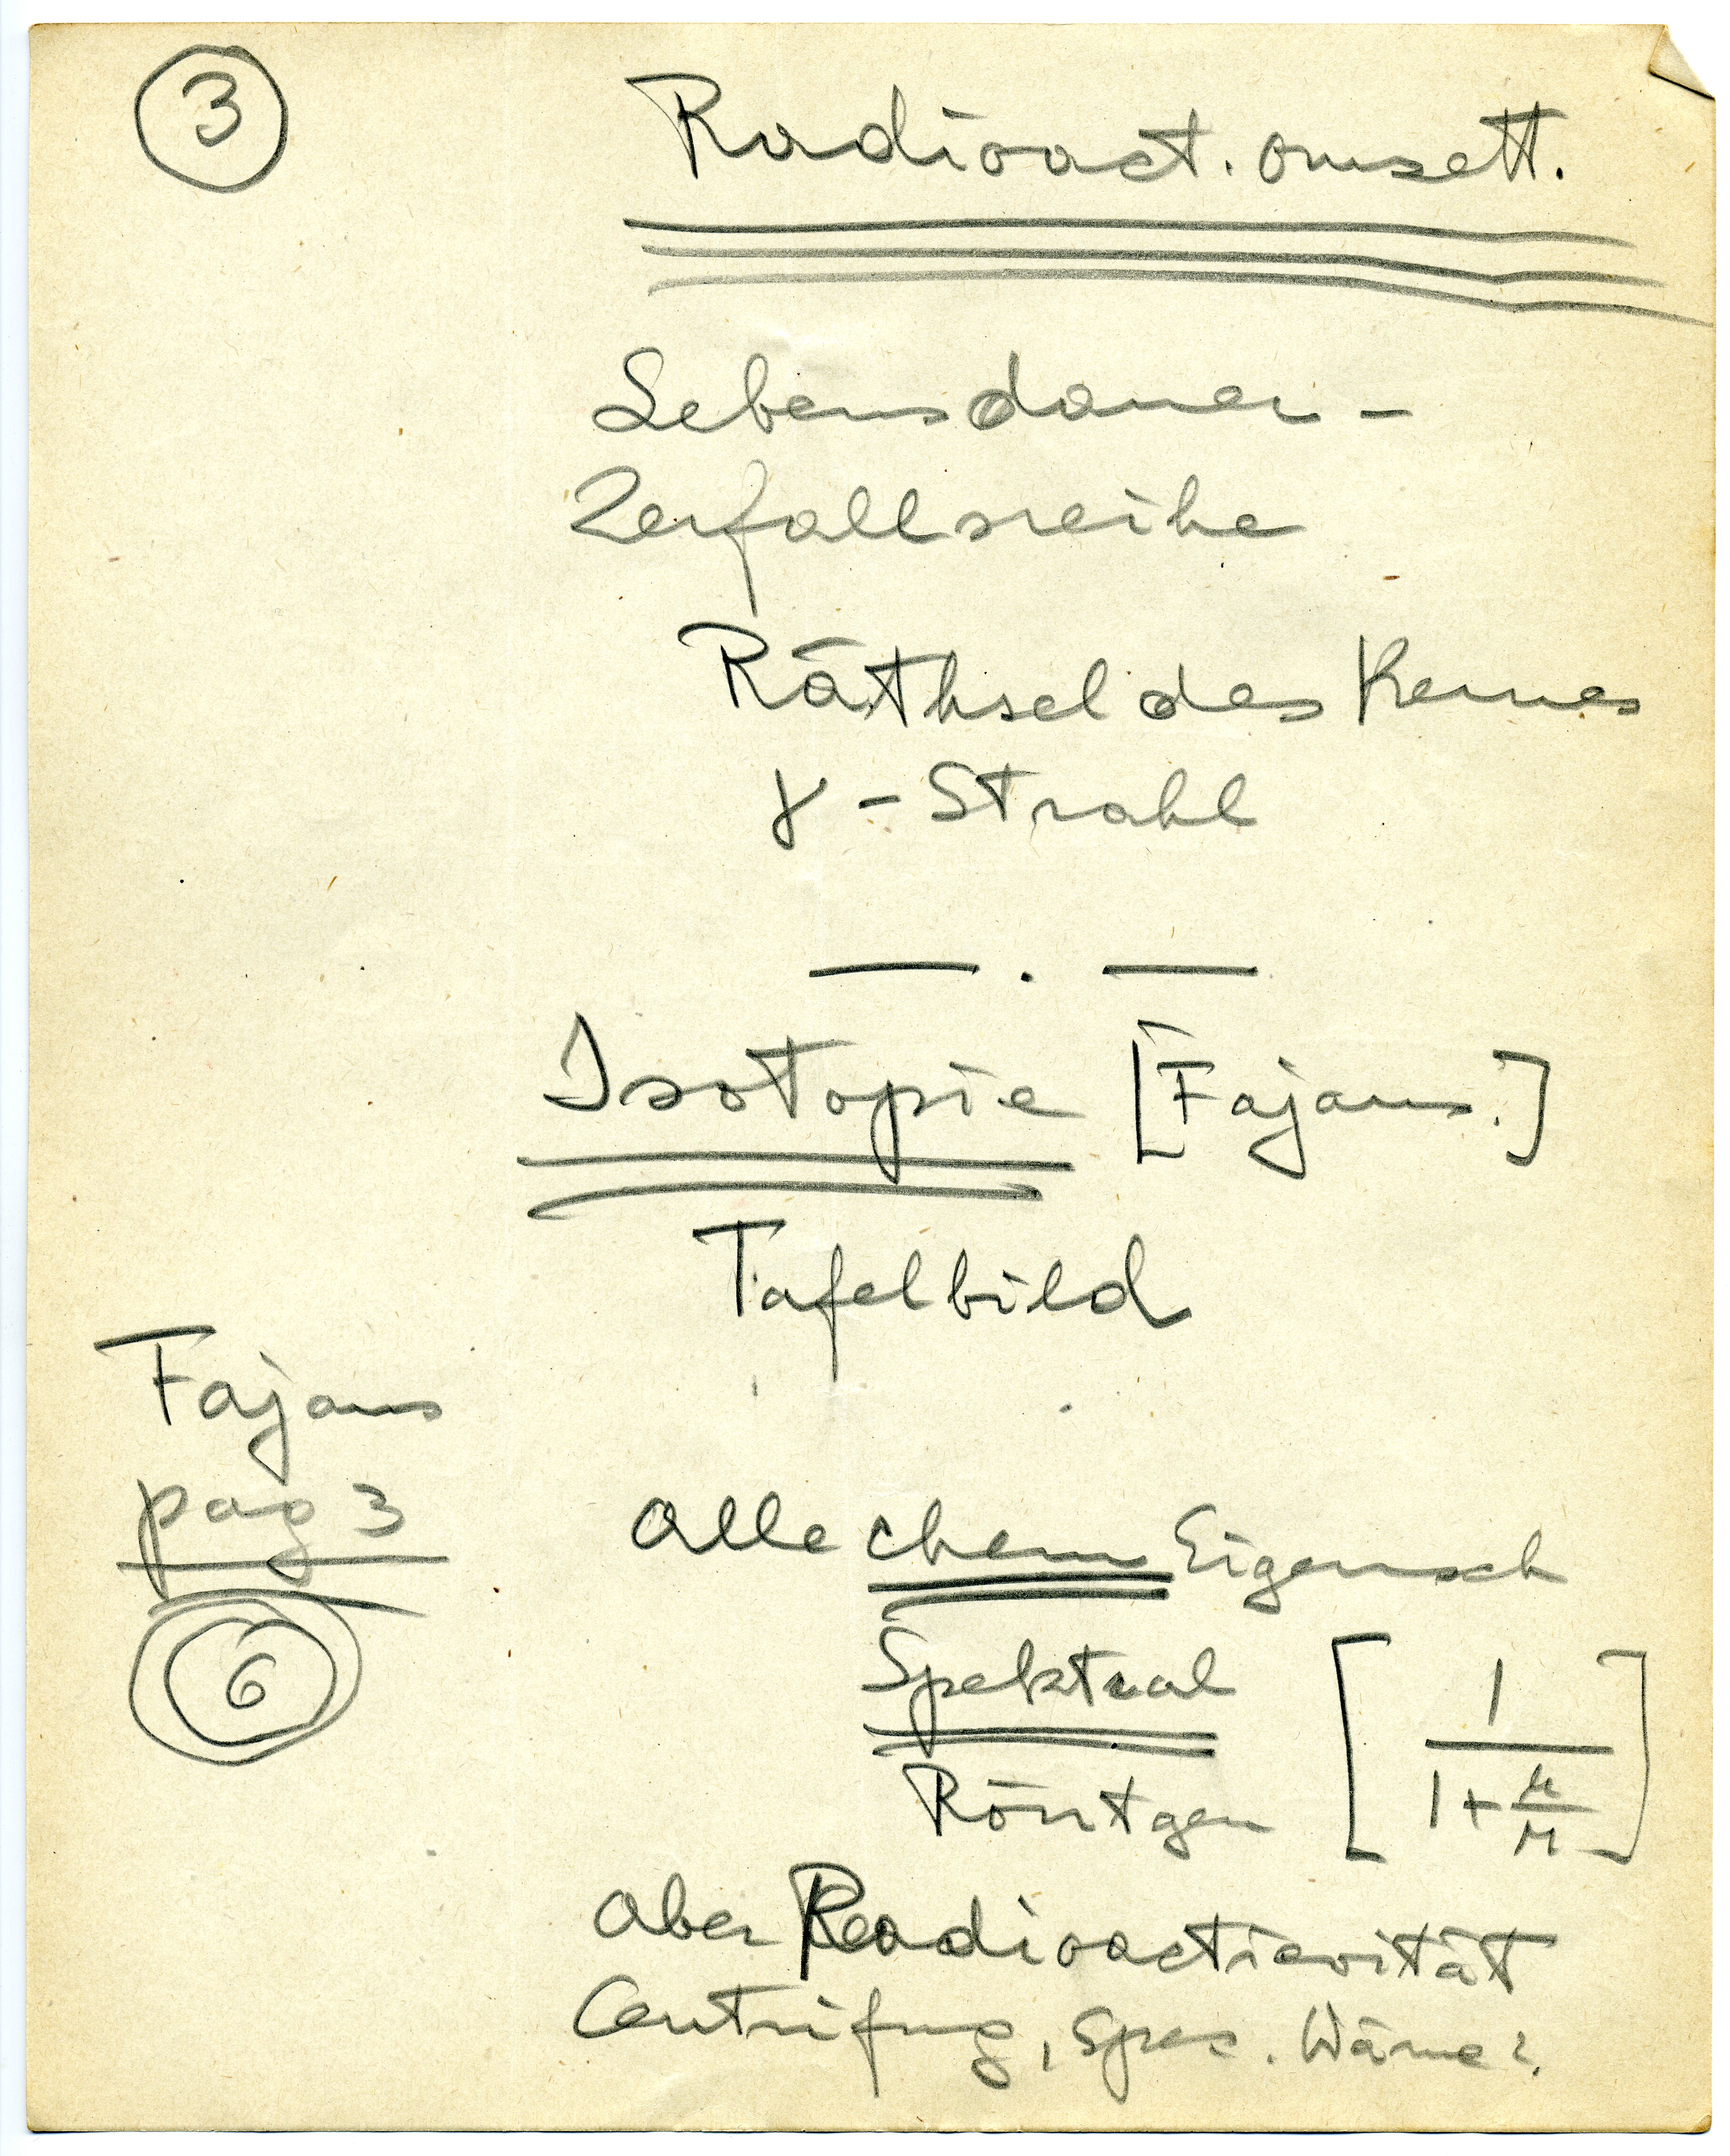 3
Radioact. omsett.
Lebensdauer -
Zerfallsreihe
Räthsel des Kernes
γ - Strahl
— . —
Isotopie [Fajans.]
Tafelbild
Fajans
pag 3
6
Alle chem Eigensch
Spektral
Röntgen [1/(1+μ/M)]
Aber Radioactivität
Centrifug, Spez. Wärme?